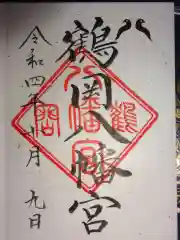 鶴岡八幡宮
令和四年 月九日
鶴
八幡宮
岡